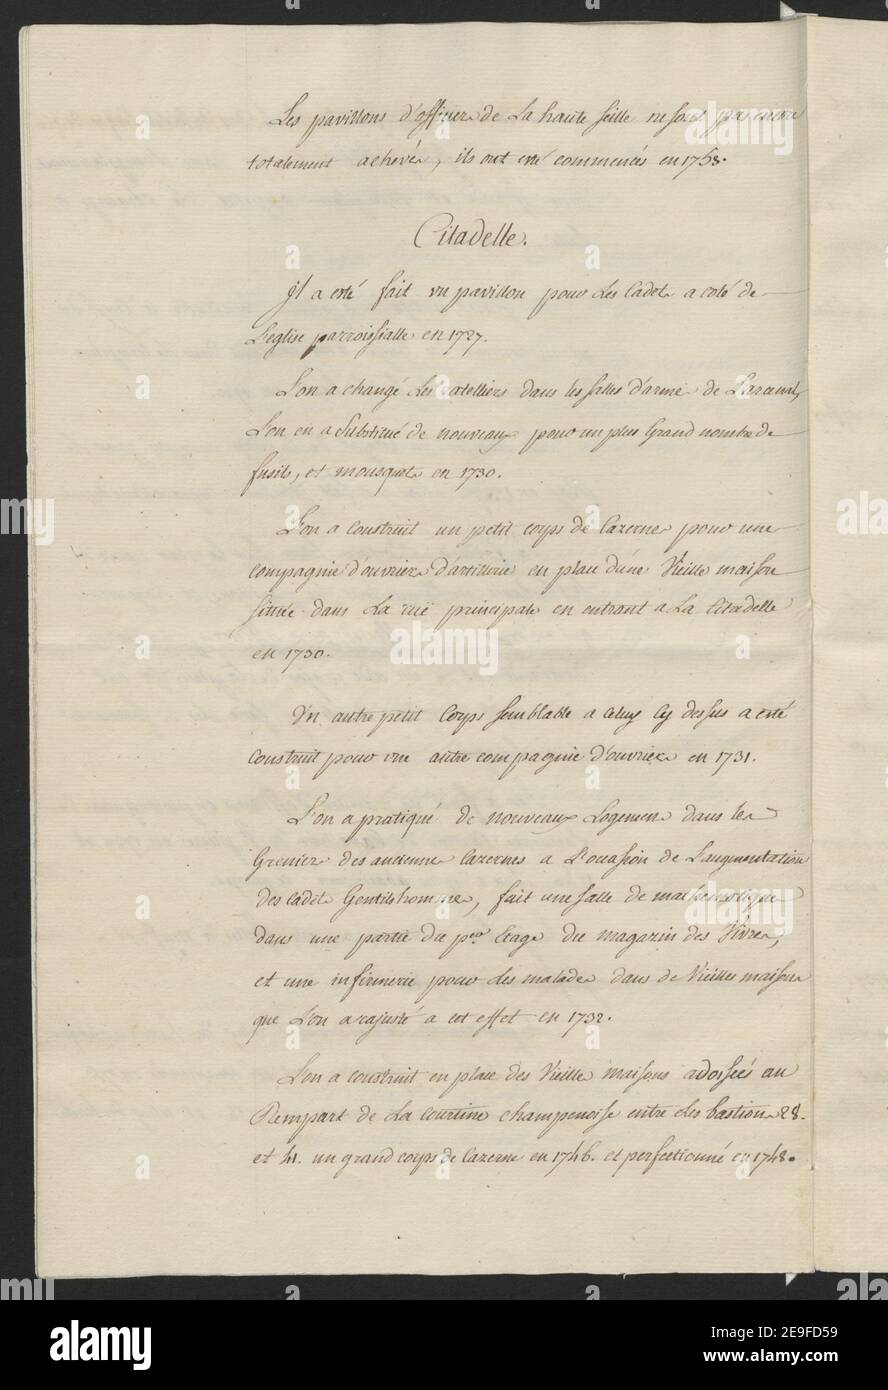 Les pavillons d'officiers de La haute seille ne sont pas encore
totalement achevés, ils ont eté commencés en 1738.
Citadelle.
Il a eté fait un pavillon pour Les Cadets a coté de
L'eglise parroissialle en 1727.
L'on a changé Les ratelliers dans les salles d'armes de L'arcenal,
L'on en a substitué de nouveaux pour un plus Grand nombre de
fusils, et mousquets en 1730.
L'on a construit un petit corps de Cazernes pour une
compagnie d'ouvriers d'artillerie en place d'une Vieille maison
située dans La ruë principale en entrant a La Citadelle
en 1730.
Un autre petit Corps semblable a Celuy Cy dessus a eté
Construit pour une autre compagnie d'ouvriers en 1731.
L'on a pratiqué de nouveaux Logemens dans les
Greniers des anciennes Cazernes a L'occasion de L'augmentation
des Cadets Gentilshommes, fait une salle de mathematique
dans une partie du per Etage du magazin des Vivres,
et une infirmerie pour les malades dans de Vieilles maisons
que L'on a rajusté a cet effet en 1732.
L'on a construit en place des Vieilles maisons adossées au
Rempart de La Courtine Champenoise entre Les bastions 28.
et 41. un grand corps de Cazerne en 1746. et perfectionné en 1748.
alamy
Image ID: 2E9FD59
www.alamy.com